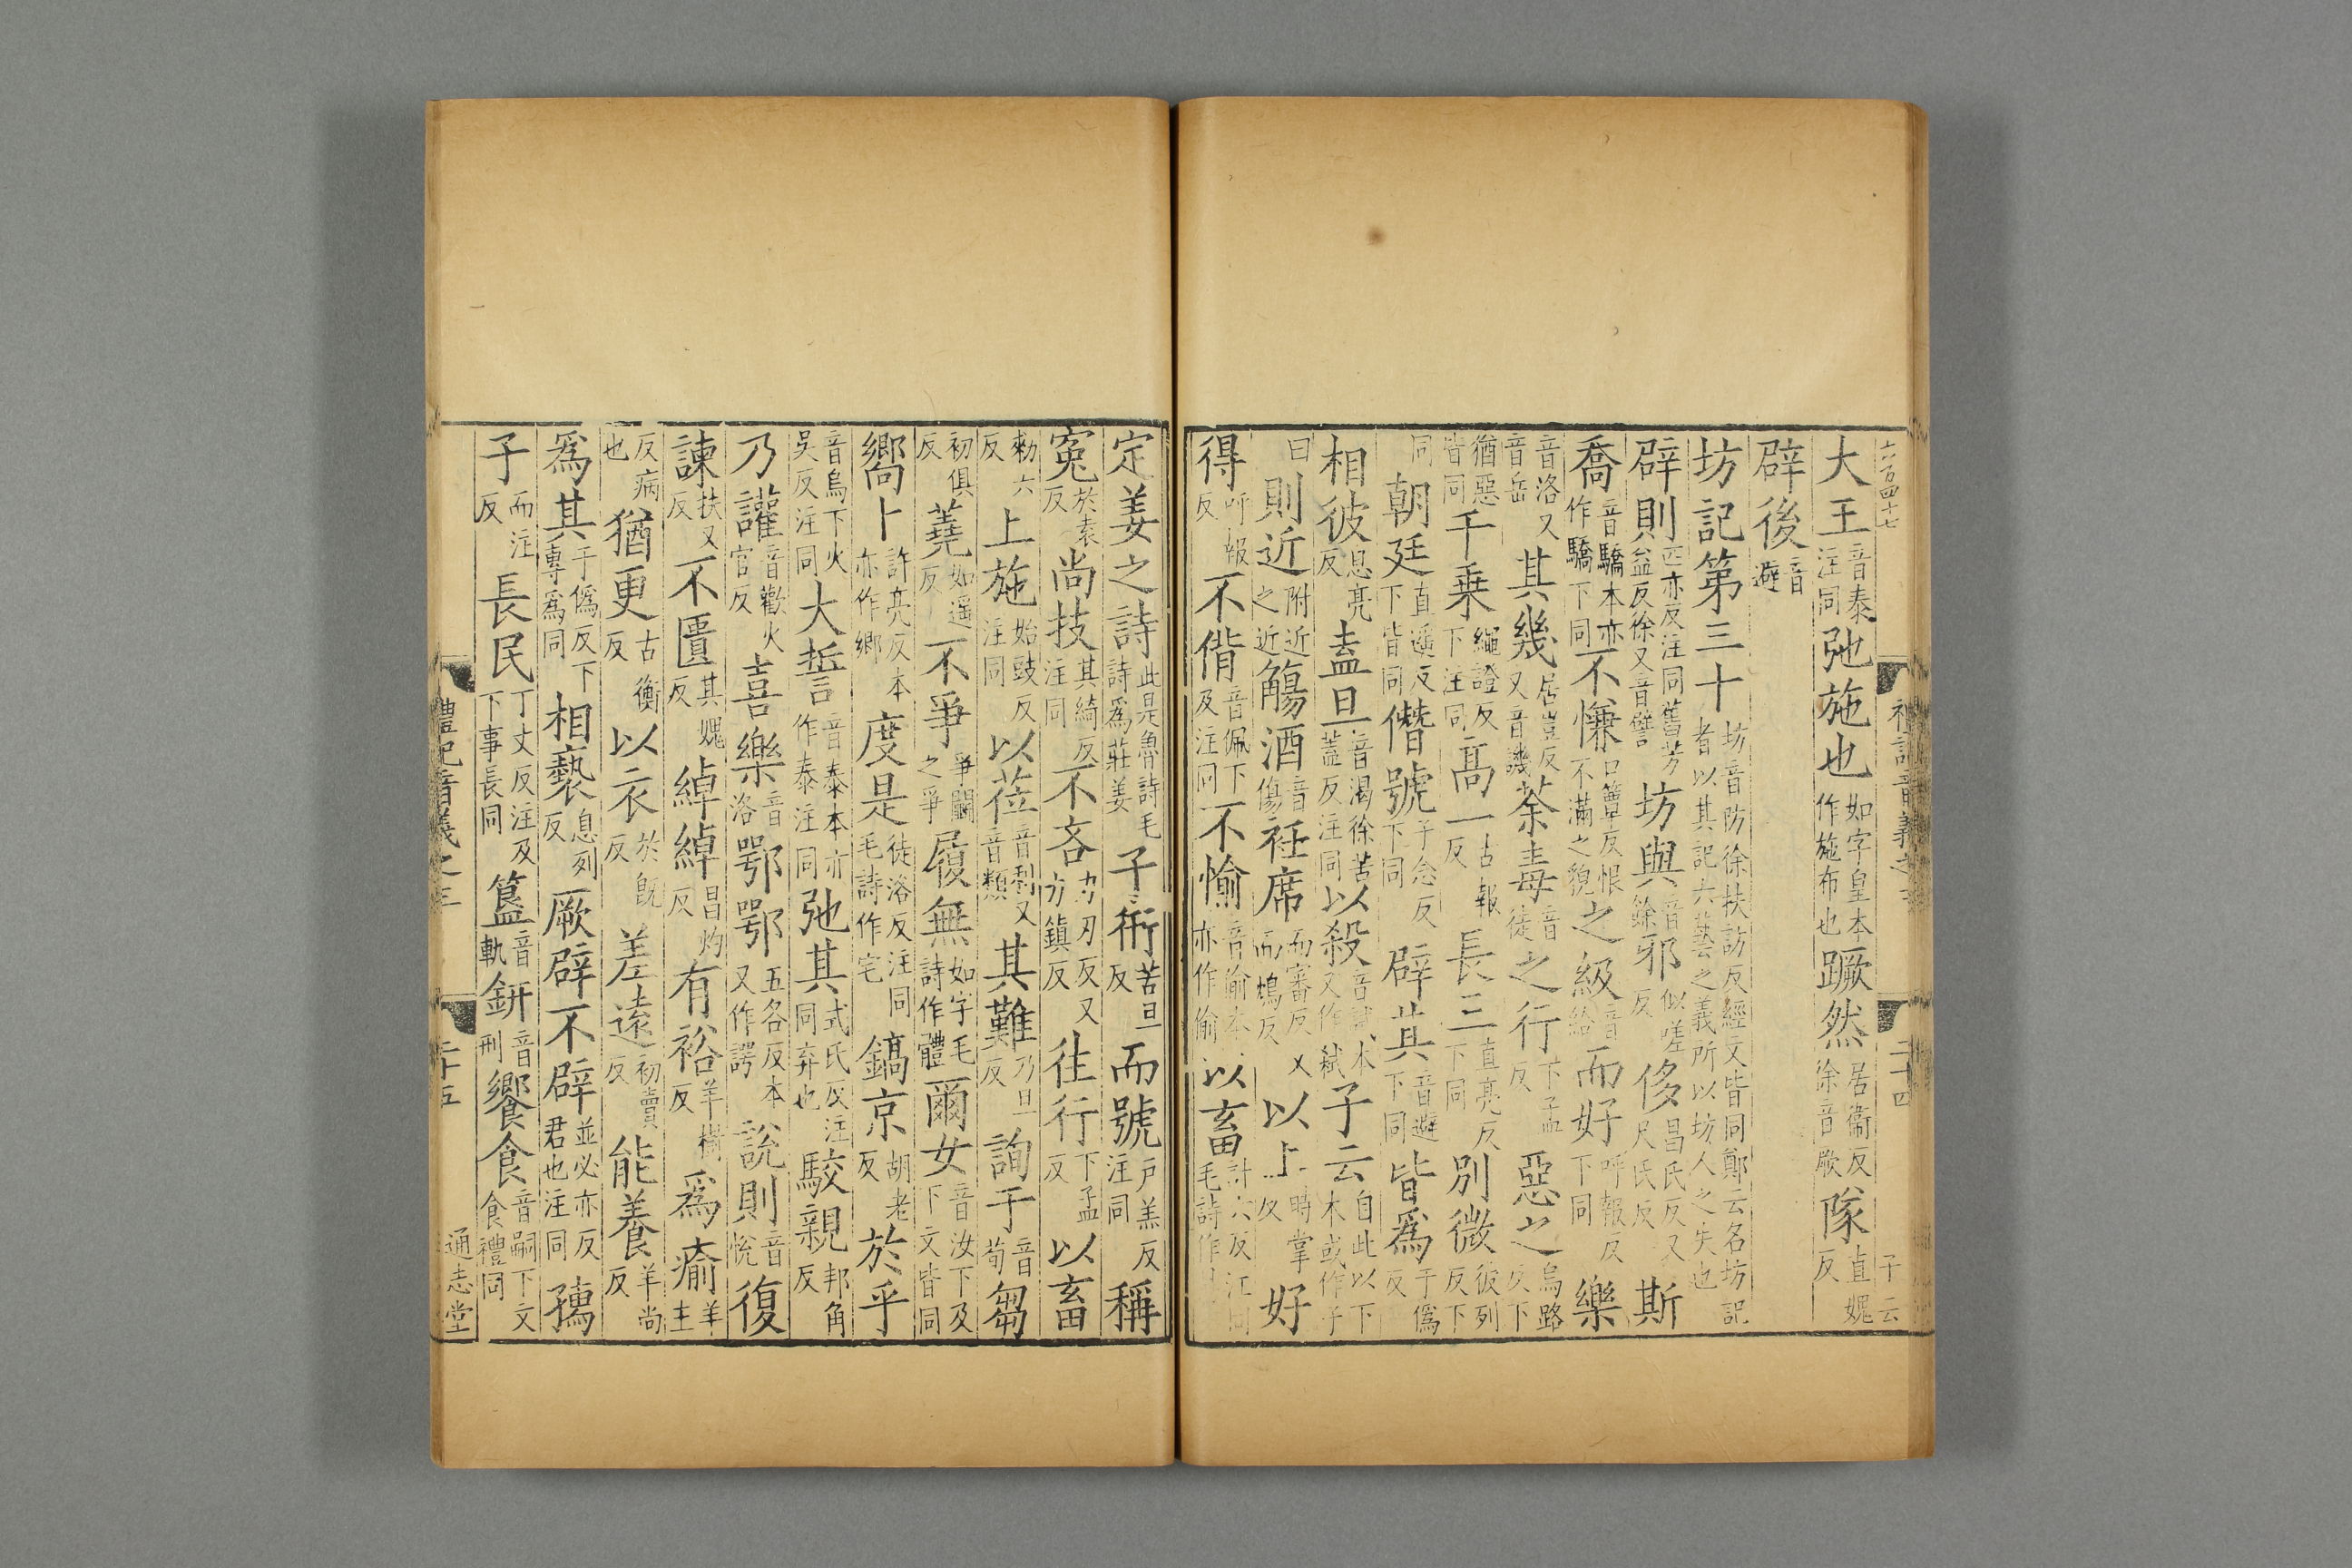 六百四十七
大王音泰注同弛施也如字皇本作施布也蹶然居衞反徐音厥隊直媿反
辟後音避
坊記第三十坊音防徐扶訪反經文皆同鄭云名坊記者以其記六藝之義所以坊人之失也
辟則匹亦反注同舊芳益反徐又音譬坊與音餘邪似嗟反侈昌氏反又尺氏反斯
喬音驕本亦作驕下同不慊口簟反恨不滿之貌之級音給而好呼報反下同樂
音洛又音岳其幾居豈反又音譏荼毒音徒之行下孟反惡之烏路反下
猶惡皆同千乗繩證反下注同高一古報反長三直亮反下同別微彼列反下
同朝廷直遥反下皆同僭號子念反下同辟其音避下同皆爲于僞反
相彼息亮反盍旦音渴徐苦蓋反注同以殺音試本又作弑子云自此以下本或作子
曰則近附近之近觴酒音傷衽席而審反又而鴆反以上時掌反好
得呼報反不偝音佩下及注同不愉音偷本亦作偷以畜許六反注同毛詩作
禮記音義之三
二十四
子云
定姜之詩此是魯詩毛詩爲莊姜子衎苦旦反而號戶羔反注同稱
寃於袁反尚技其綺反注同不吝力刃反又力鎮反往行下孟反以畜
勑六反上施始豉反注同以莅音利又音類其難乃旦反詢于音荀芻
初俱反蕘如遥反不爭爭鬭之爭履無如字毛詩作體爾女音汝下及下文皆同
嚮卜許亮反本亦作鄉度是徒洛反注同毛詩作宅鎬京胡老反於乎
音烏下火吳反注同大誓音泰本亦作泰注同弛其式氏反注同弃也駮親邦角反
乃讙音歡火官反喜樂音洛鄂鄂五各反本又作諤說則音悅復
諫扶又反不匱其媿反綽綽昌灼反有裕羊樹反爲瘉羊主
反病也猶更古衡反以衣於旣反差遠初賣反能養羊尚反
爲其于僞反下專爲同相褻息列反厥辟不辟並必亦反君也注同孺
子而注反長民丁丈反注及下事長同簋音軌鉶音刑饗食音嗣下文食禮同
禮記音義之三
二十五
通志堂